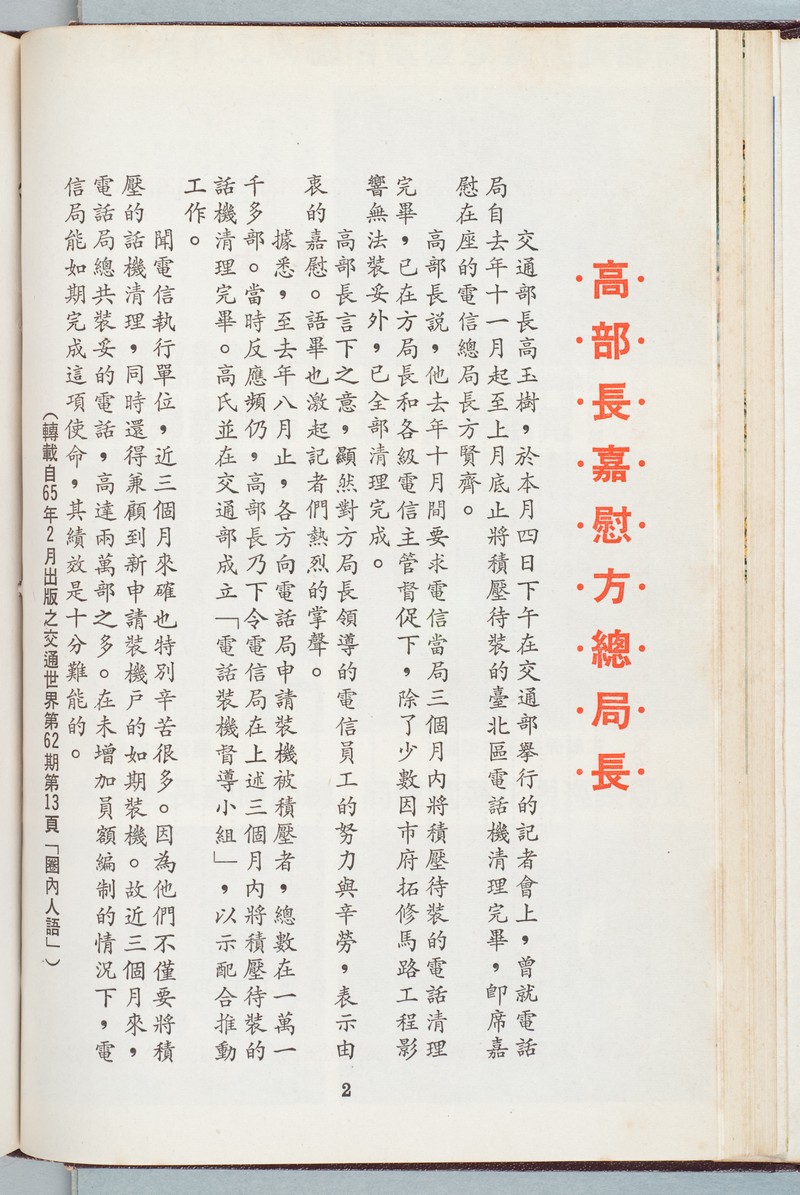 高部長嘉慰方總局長
交通部長高玉樹，於本月四日下午在交通部舉行的記者會上，曾就電話
局自去年十一月起至上月底止將積壓待裝的臺北區電話機清理完畢，卽席嘉
慰在座的電信總局長方賢齊。
高部長說，他去年十月間要求電信當局三個月內將積壓待裝的電話清理
完畢，已在方局長和各級電信主管督促下，除了少數因市府拓修馬路工程影
響無法裝妥外，已全部清理完成。
高部長言下之意，顯然對方局長領導的電信員工的努力與辛勞，表示由
衷的嘉慰。語畢也激起記者們熱烈的掌聲。
據悉，至去年八月止，各方向電話局申請裝機被積壓者，總數在一萬一
千多部。當時反應頻仍，高部長乃下令電信局在上述三個月內將積壓待裝的
話機清理完畢。高氏並在交通部成立「電話裝機督導小組」，以示配合推動
工作。
聞電信執行單位，近三個月來確也特別辛苦很多。因為他們不僅要將積
壓的話機清理，同時還得兼顧到新申請裝機戶的如期裝機。故近三個月來，
電話局總共裝妥的電話，高達兩萬部之多。在未增加員額編制的情況下，電
信局能如期完成這項使命，其績效是十分難能的。
（轉載自65年2月出版之交通世界第62期第13頁「圈內人語」）
2